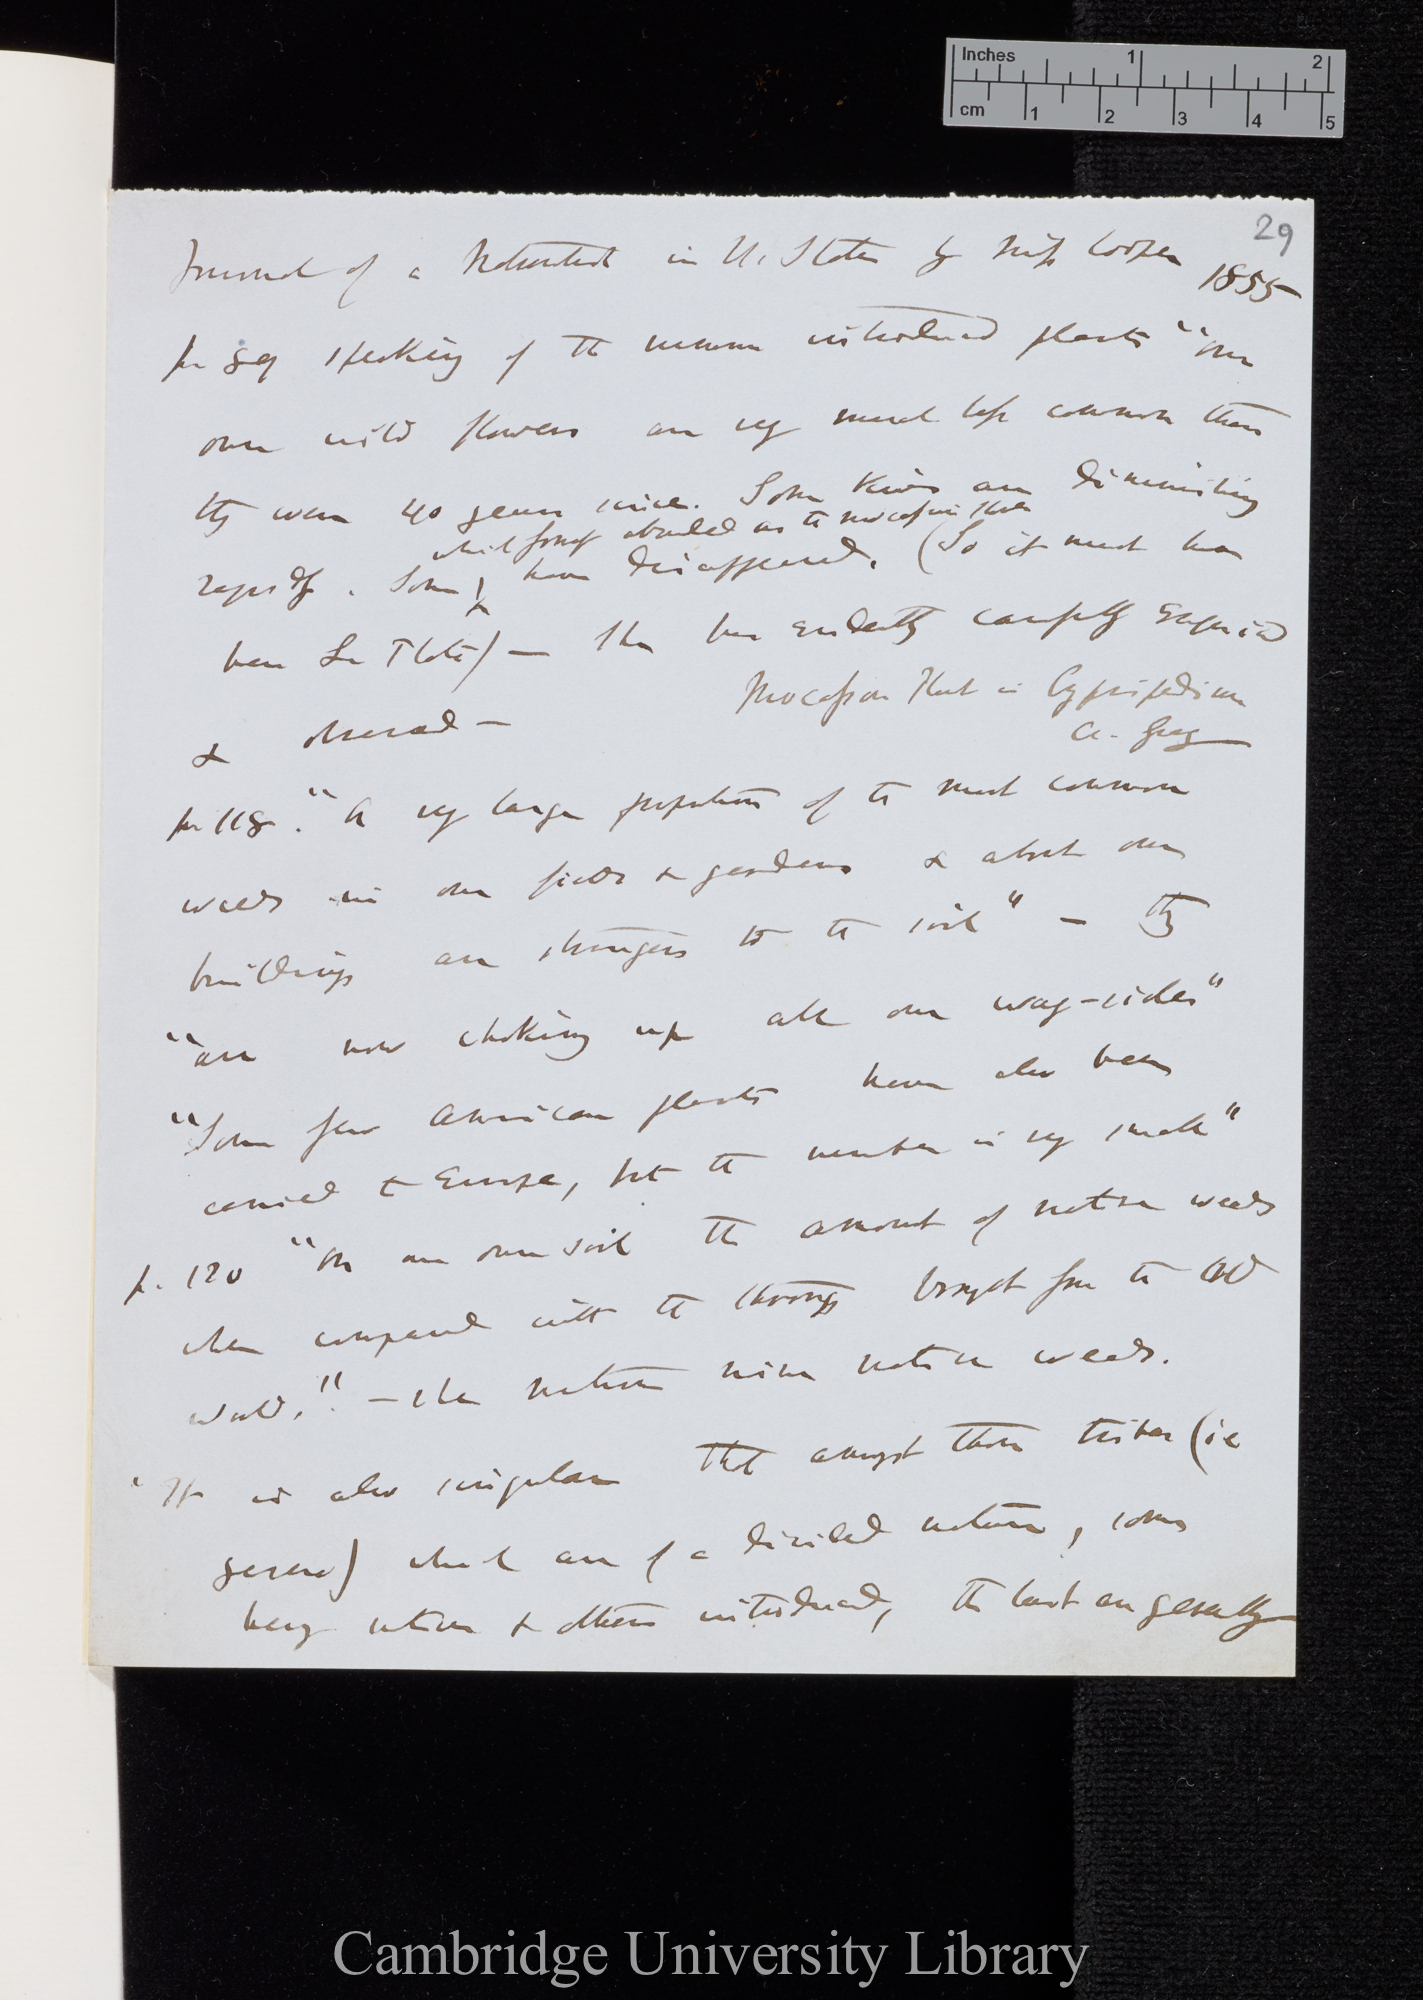 Inches 1 2
cm 1 2 3 4 5
29
Journal of a Naturalist in U. States by Miss Cooper
1855
p. 89 speaking of the numerous introduced plants "our
own wild flowers are very much less common than
they were 40 years since. Some kinds are diminishing
which formerly abounded as the mocassin flower
rapidly. Some have disappeared. (So it must have
been La Plata) — She has evidently carefully enquired
Mocassin Plant is Cypripedium
& observed —
A. Gray
p. 118. "A very large proportion of the most common
weeds in our fields & gardens & about our
buildings are strangers to the soil" — they
"are now choking up all our way-sides"
"Some few American plants have also been
carried to Europe, but the number is very small"
p. 120 "On our own soil the amount of native weeds
when compared with the throngs brought from the Old
World," — she mentions nine native weeds.
"It is also singular that amongst those tribes (ie
genera) which are of a divided nature, some
being natives & others introduced, the last are generally
Cambridge University Library